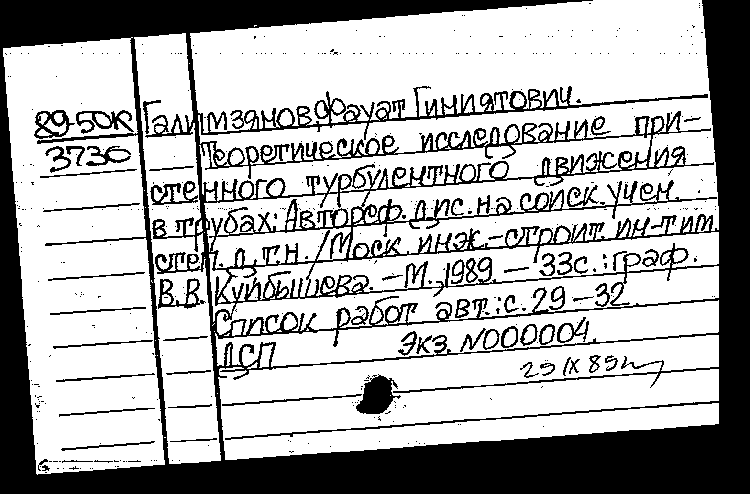 89-50К Галимзянов, Фауат Гиниятович.
3730 Теоретическое исследование при-
стенного турбулентного движения
в трубах: Автореф. дис. на соиск. учен.
степ. д.т.н. / Моск. инж.-строит. ин-т им.
В.В. Куйбышева. – М., 1989. – 33с.: граф.
Список работ авт.: с. 29–32.
ДСП Экз. N000004.